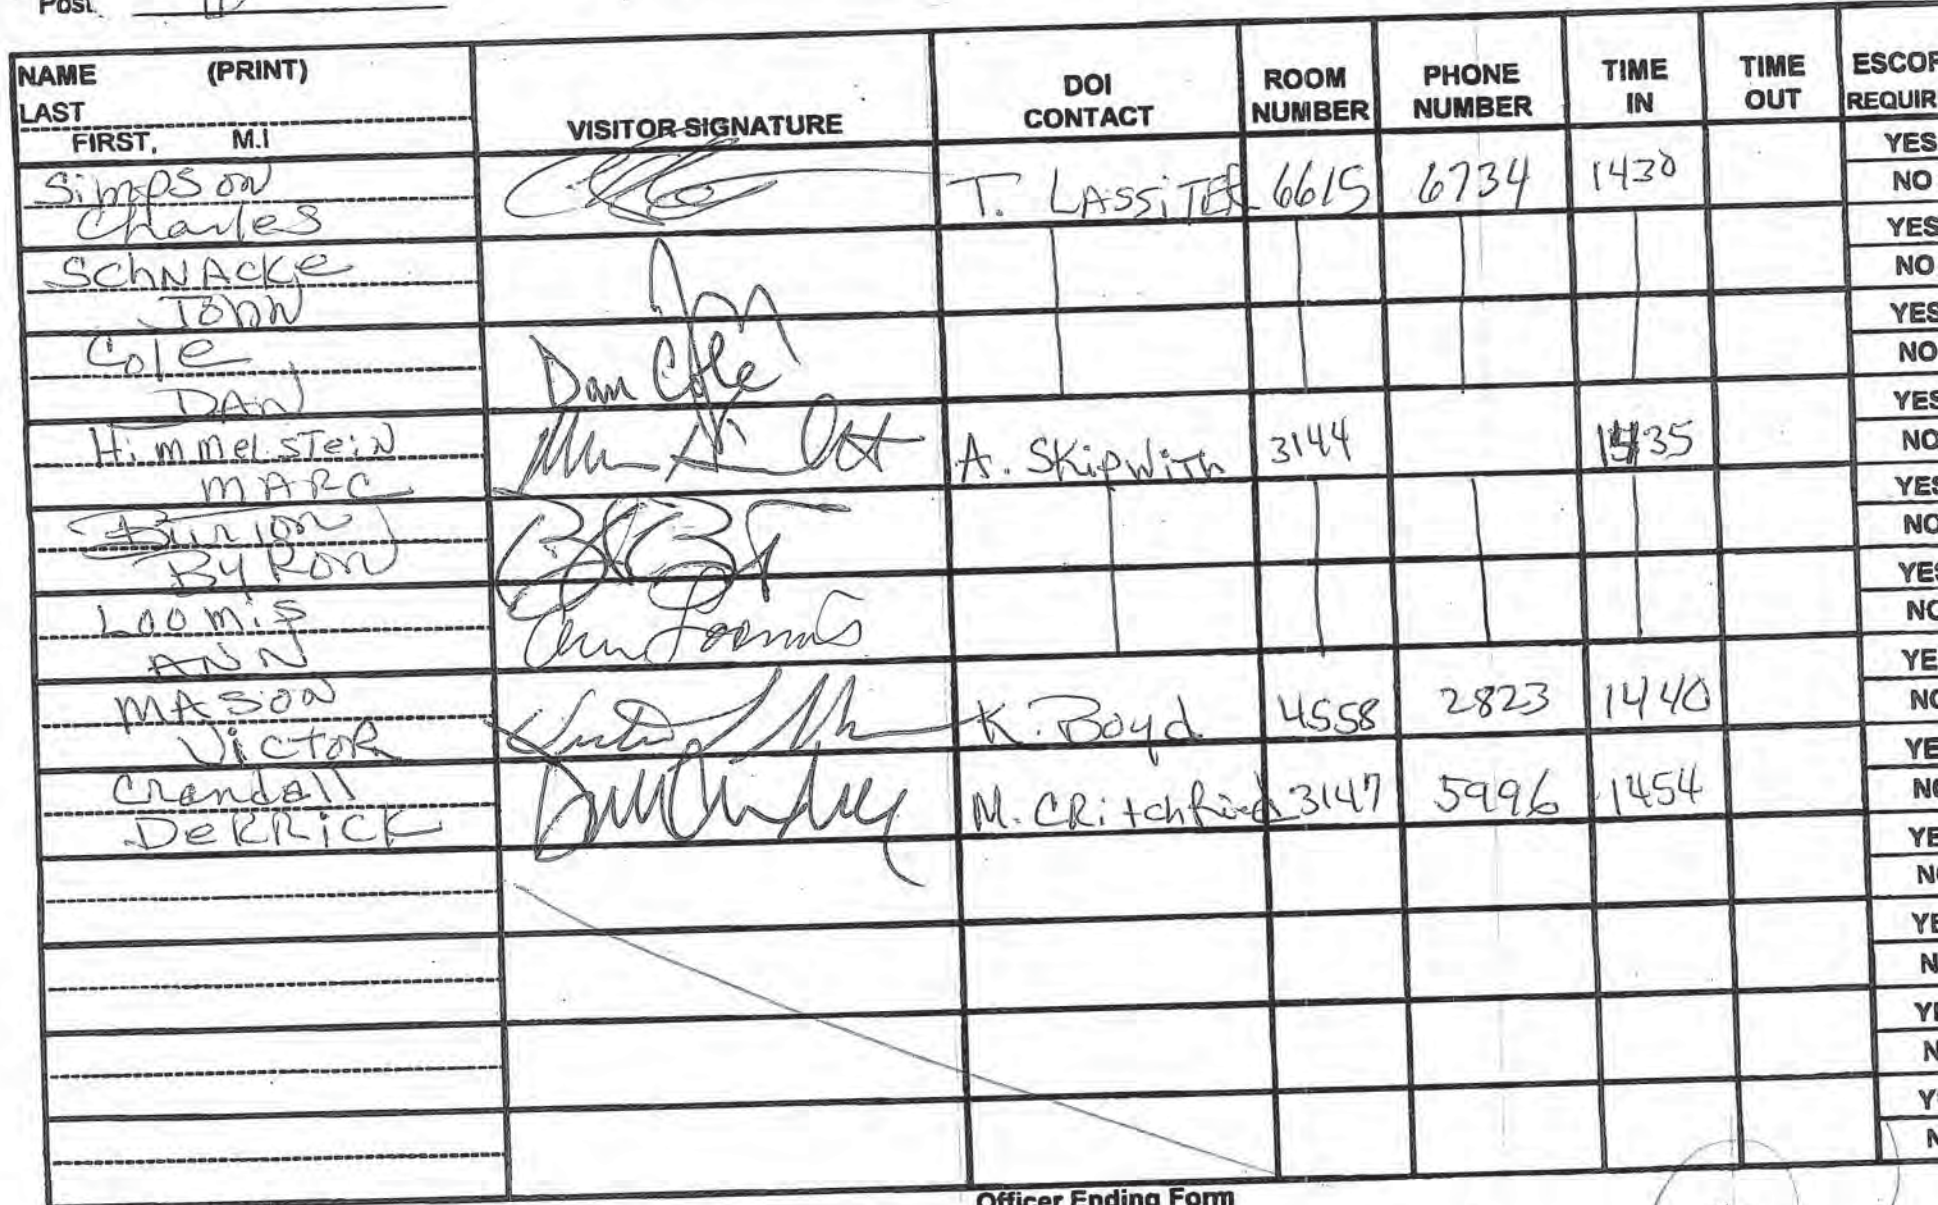 Post
NAME (PRINT)
LAST
FIRST, M.I
VISITOR SIGNATURE
DOI
CONTACT
ROOM
NUMBER
PHONE
NUMBER
TIME
IN
TIME
OUT
ESCOR
REQUIR
Simpson
Charles
T. LASSITER 6615 6734 1430
YES
NO
SCHNACKE
JOHN
YES
NO
Cole
DAN
Dan Cole
YES
NO
Himmelstein
MARC
A. Skipwith 3144 1435
YES
NO
BYRON
YES
NO
Loomis
ANN
Ann Loomis
YES
NO
MASON
VICTOR
K. Boyd 4558 2823 1440
YE
NO
Crandall
DERRICK
M. 3147 5996 1454
YE
NO
YE
NO
YE
N
YE
N
Y
N
Officer Ending Form